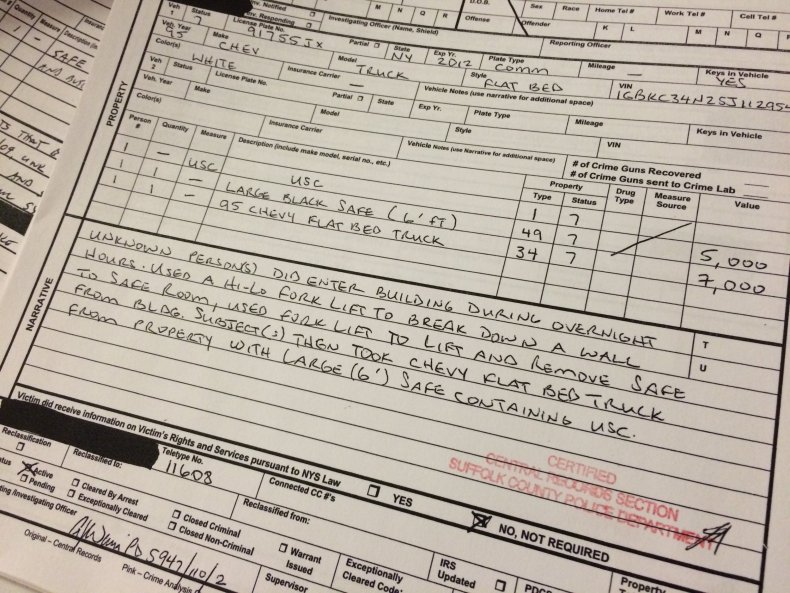 D.O.B.
Sex Race Home Tel # Work Tel # Cell Tel #
Inv. Notified
Inv. Responding
M N Q R
Offense Offender
K L M N Q
Veh Status License Plate No. Investigating Officer (Name, Shield) Reporting Officer
1 7 91755JX Partial State NY Exp Yr. 2012 Plate Type COMM Mileage — Keys in Vehicle YES
Veh. Year 95 Make CHEV Model TRUCK Style FLAT BED VIN
Color(s) WHITE Insurance Carrier — Vehicle Notes (use narrative for additional space)
Veh Status License Plate No. Partial State Exp Yr. Plate Type Mileage Keys in Vehicle
2
Veh. Year Make Model Style VIN
Color(s) Insurance Carrier Vehicle Notes (use Narrative for additional space)
PROPERTY
# of Crime Guns Recovered
# of Crime Guns sent to Crime Lab
Person # Quantity Measure Description (include make model, serial no., etc.) Property Type Status Drug Type Measure Source Value
1 — USC USC 1 7
1 1 — LARGE BLACK SAFE (6' FT) 49 7 5,000
1 1 — 95 CHEVY FLAT BED TRUCK 34 7 7,000
NARRATIVE
UNKNOWN PERSON(S) DID ENTER BUILDING DURING OVERNIGHT
HOURS. USED A HI-LO FORK LIFT TO BREAK DOWN A WALL
TO SAFE ROOM, USED FORK LIFT TO LIFT AND REMOVE SAFE
FROM BLDG. SUBJECT(S) THEN TOOK CHEVY FLAT BED TRUCK
FROM PROPERTY WITH LARGE (6') SAFE CONTAINING USC.
T
U
Victim did receive information on Victim's Rights and Services pursuant to NYS Law YES NO, NOT REQUIRED
CERTIFIED
CENTRAL RECORDS SECTION
SUFFOLK COUNTY POLICE DEPARTMENT
Reclassification Reclassified to: Teletype No. 11608 Connected CC #'s
Active
Pending
Cleared By Arrest
Exceptionally Cleared
Closed Criminal
Closed Non-Criminal
Reclassified from:
Warrant Issued
Exceptionally Cleared Code:
IRS Updated
Investigating Officer
Supervisor
Original – Central Records Pink – Crime Analysis